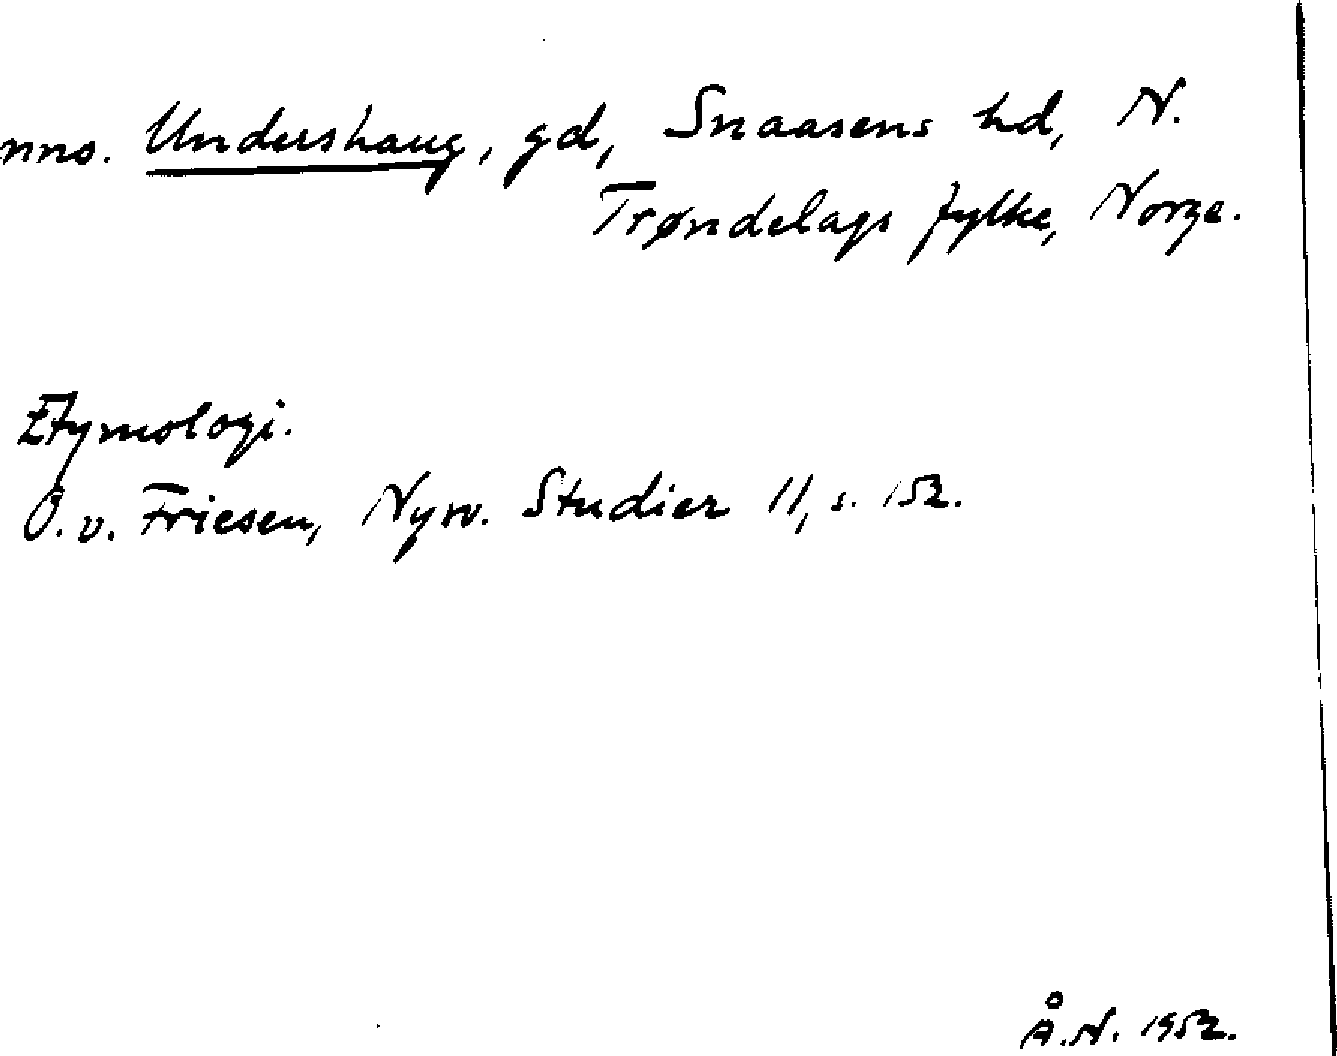 nno. Undershaug, gd, Snaasens hd, N.
Trøndelags fylke, Norge.
Etymologi.
O. v. Friesen, Nysv. Studier 11, s. 152.
Å.N. 1952.